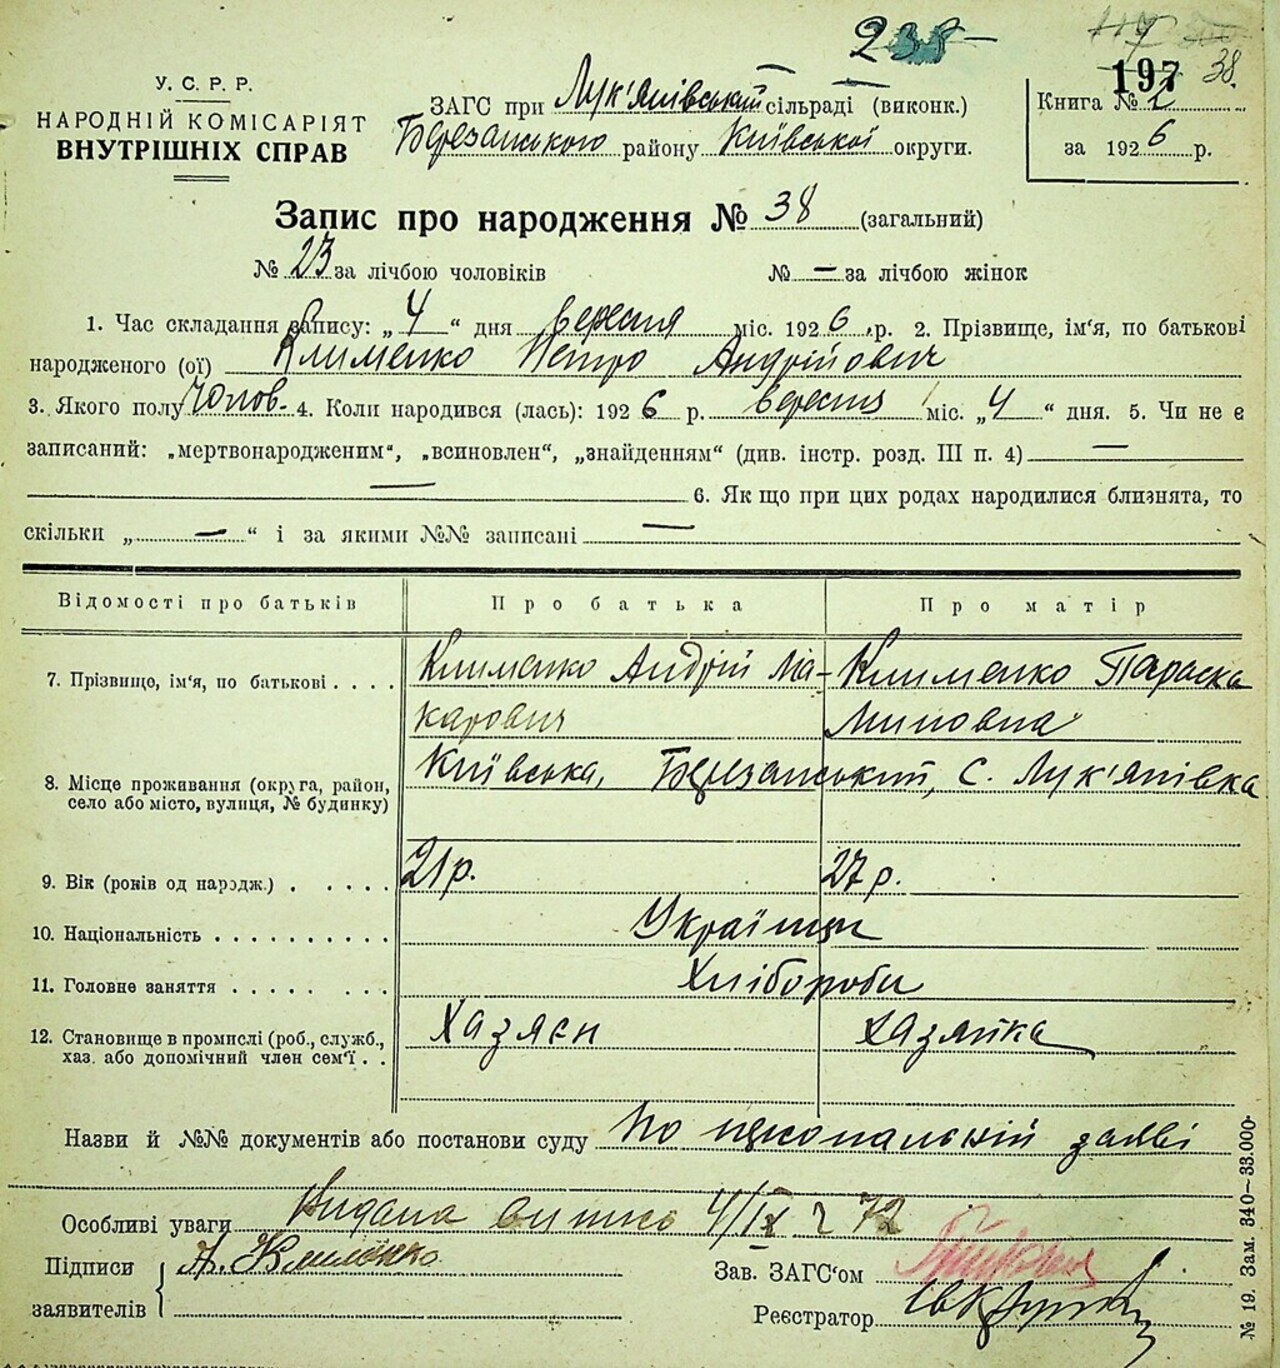 238-
197 38.
У. С. Р. Р.
НАРОДНІЙ КОМІСАРІЯТ
ВНУТРІШНІХ СПРАВ
ЗАГС при Лук'янівський сільраді (виконк.)
Березанського району Київської округи.
Книга № 2
за 1926 р.
Запис про народження № 38 (загальний)
№ 23 за лічбою чоловіків № — за лічбою жінок
1. Час складання запису: „4“ дня вересня міс. 1926 р. 2. Прізвище, ім'я, по батькові
народженого (ої) Клименко Петро Андрійович
3. Якого полу Чолов. 4. Коли народився (лась): 1926 р. вересня міс. „4“ дня. 5. Чи не є
записаний: „мертвонародженим“, „всиновлен“, „знайденням“ (див. інстр. розд. III п. 4) —
— 6. Як що при цих родах народилися близнята, то
скільки „—“ і за якими №№ записані —
Відомості про батьків Про батька Про матір
7. Прізвище, ім'я, по батькові . . . . Клименко Андрій Ма- Клименко Параска
карович Миновна
8. Місце проживання (округа, район, Київська, Березанський, с. Лук'янівка
село або місто, вулиця, № будинку)
9. Вік (років од народж.) . . . . . 21 р. 27 р.
10. Національність . . . . . . . . . . Українци
11. Головне заняття . . . . . . . . Хлібороби
12. Становище в промислі (роб., служб., Хазяєн Хазяйка
хаз. або допомічний член сем'ї . .
Назви й №№ документів або постанови суду По персональній заяві
Особливі уваги Видана 4/IX 72
Підписи А. Клименко
заявителів
Зав. ЗАГС'ом
Реєстратор
№ 19. Зам. 340—33.000